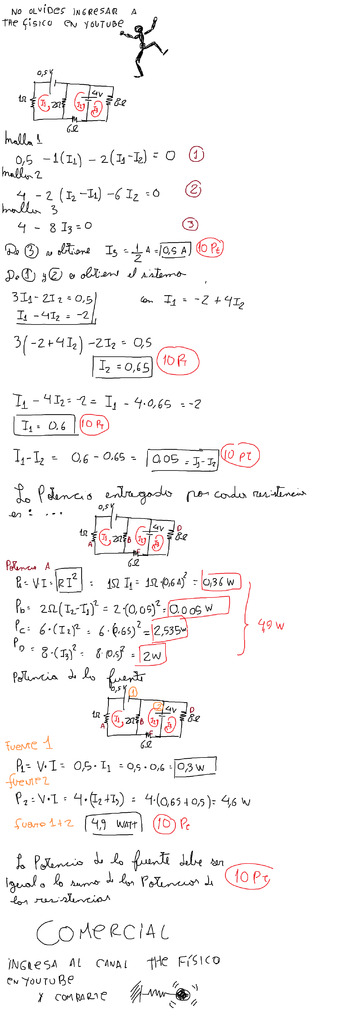 NO OLVIDES INGRESAR A
THE FÍSICO EN YOUTUBE
0,5V
1Ω I1 2Ω I2 4V I3 8Ω
6Ω
malla 1
0,5 - 1(I1) - 2(I1-I2) = 0 ①
malla 2
4 - 2(I2-I1) - 6I2 = 0 ②
malla 3
4 - 8I3 = 0 ③
De ③ se obtiene I3 = 1/2 A = 0,5A 10 Pt
De ① y ② se obtiene el sistema
3I1 - 2I2 = 0,5 con I1 = -2 + 4I2
I1 - 4I2 = -2
3(-2+4I2) - 2I2 = 0,5
I2 = 0,65 10 Pt
I1 - 4I2 = -2 = I1 - 4·0,65 = -2
I1 = 0,6 10 Pt
I1-I2 = 0,6 - 0,65 = 0,05 = I1-I2 10 PT
La Potencia entregado por cada resistencia
es : ...
0,5V
1Ω A I1 2Ω B I2 4V I3 D 8Ω
6Ω
Potencia A
P = V·I = RI² = 1Ω I1 = 1Ω(0,6A)² = 0,36 W
PB = 2Ω(I2-I1)² = 2·(0,05)² = 0.005W
PC = 6·(I2)² = 6·(0,65)² = 2,535W
PD = 8·(I3)² = 8·(0,5)² = 2W
4,9 W
Potencia de la fuente
0,5V ①
1Ω A I1 2Ω B I2 4V I3 D 8Ω
6Ω
Fuente 1
P1 = V·I = 0,5·I1 = 0,5·0,6 = 0,3W
fuente 2
P2 = V·I = 4·(I2+I3) = 4·(0,65+0,5) = 4,6 W
fuente 1+2 4,9 WATT 10 Pt
La Potencia de la fuente debe ser
Igual a la suma de las Potencias de
las resistencias
10 Pt
COMERCIAL
INGRESA AL CANAL THE FÍSICO
EN YOUTUBE
Y COMPARTE